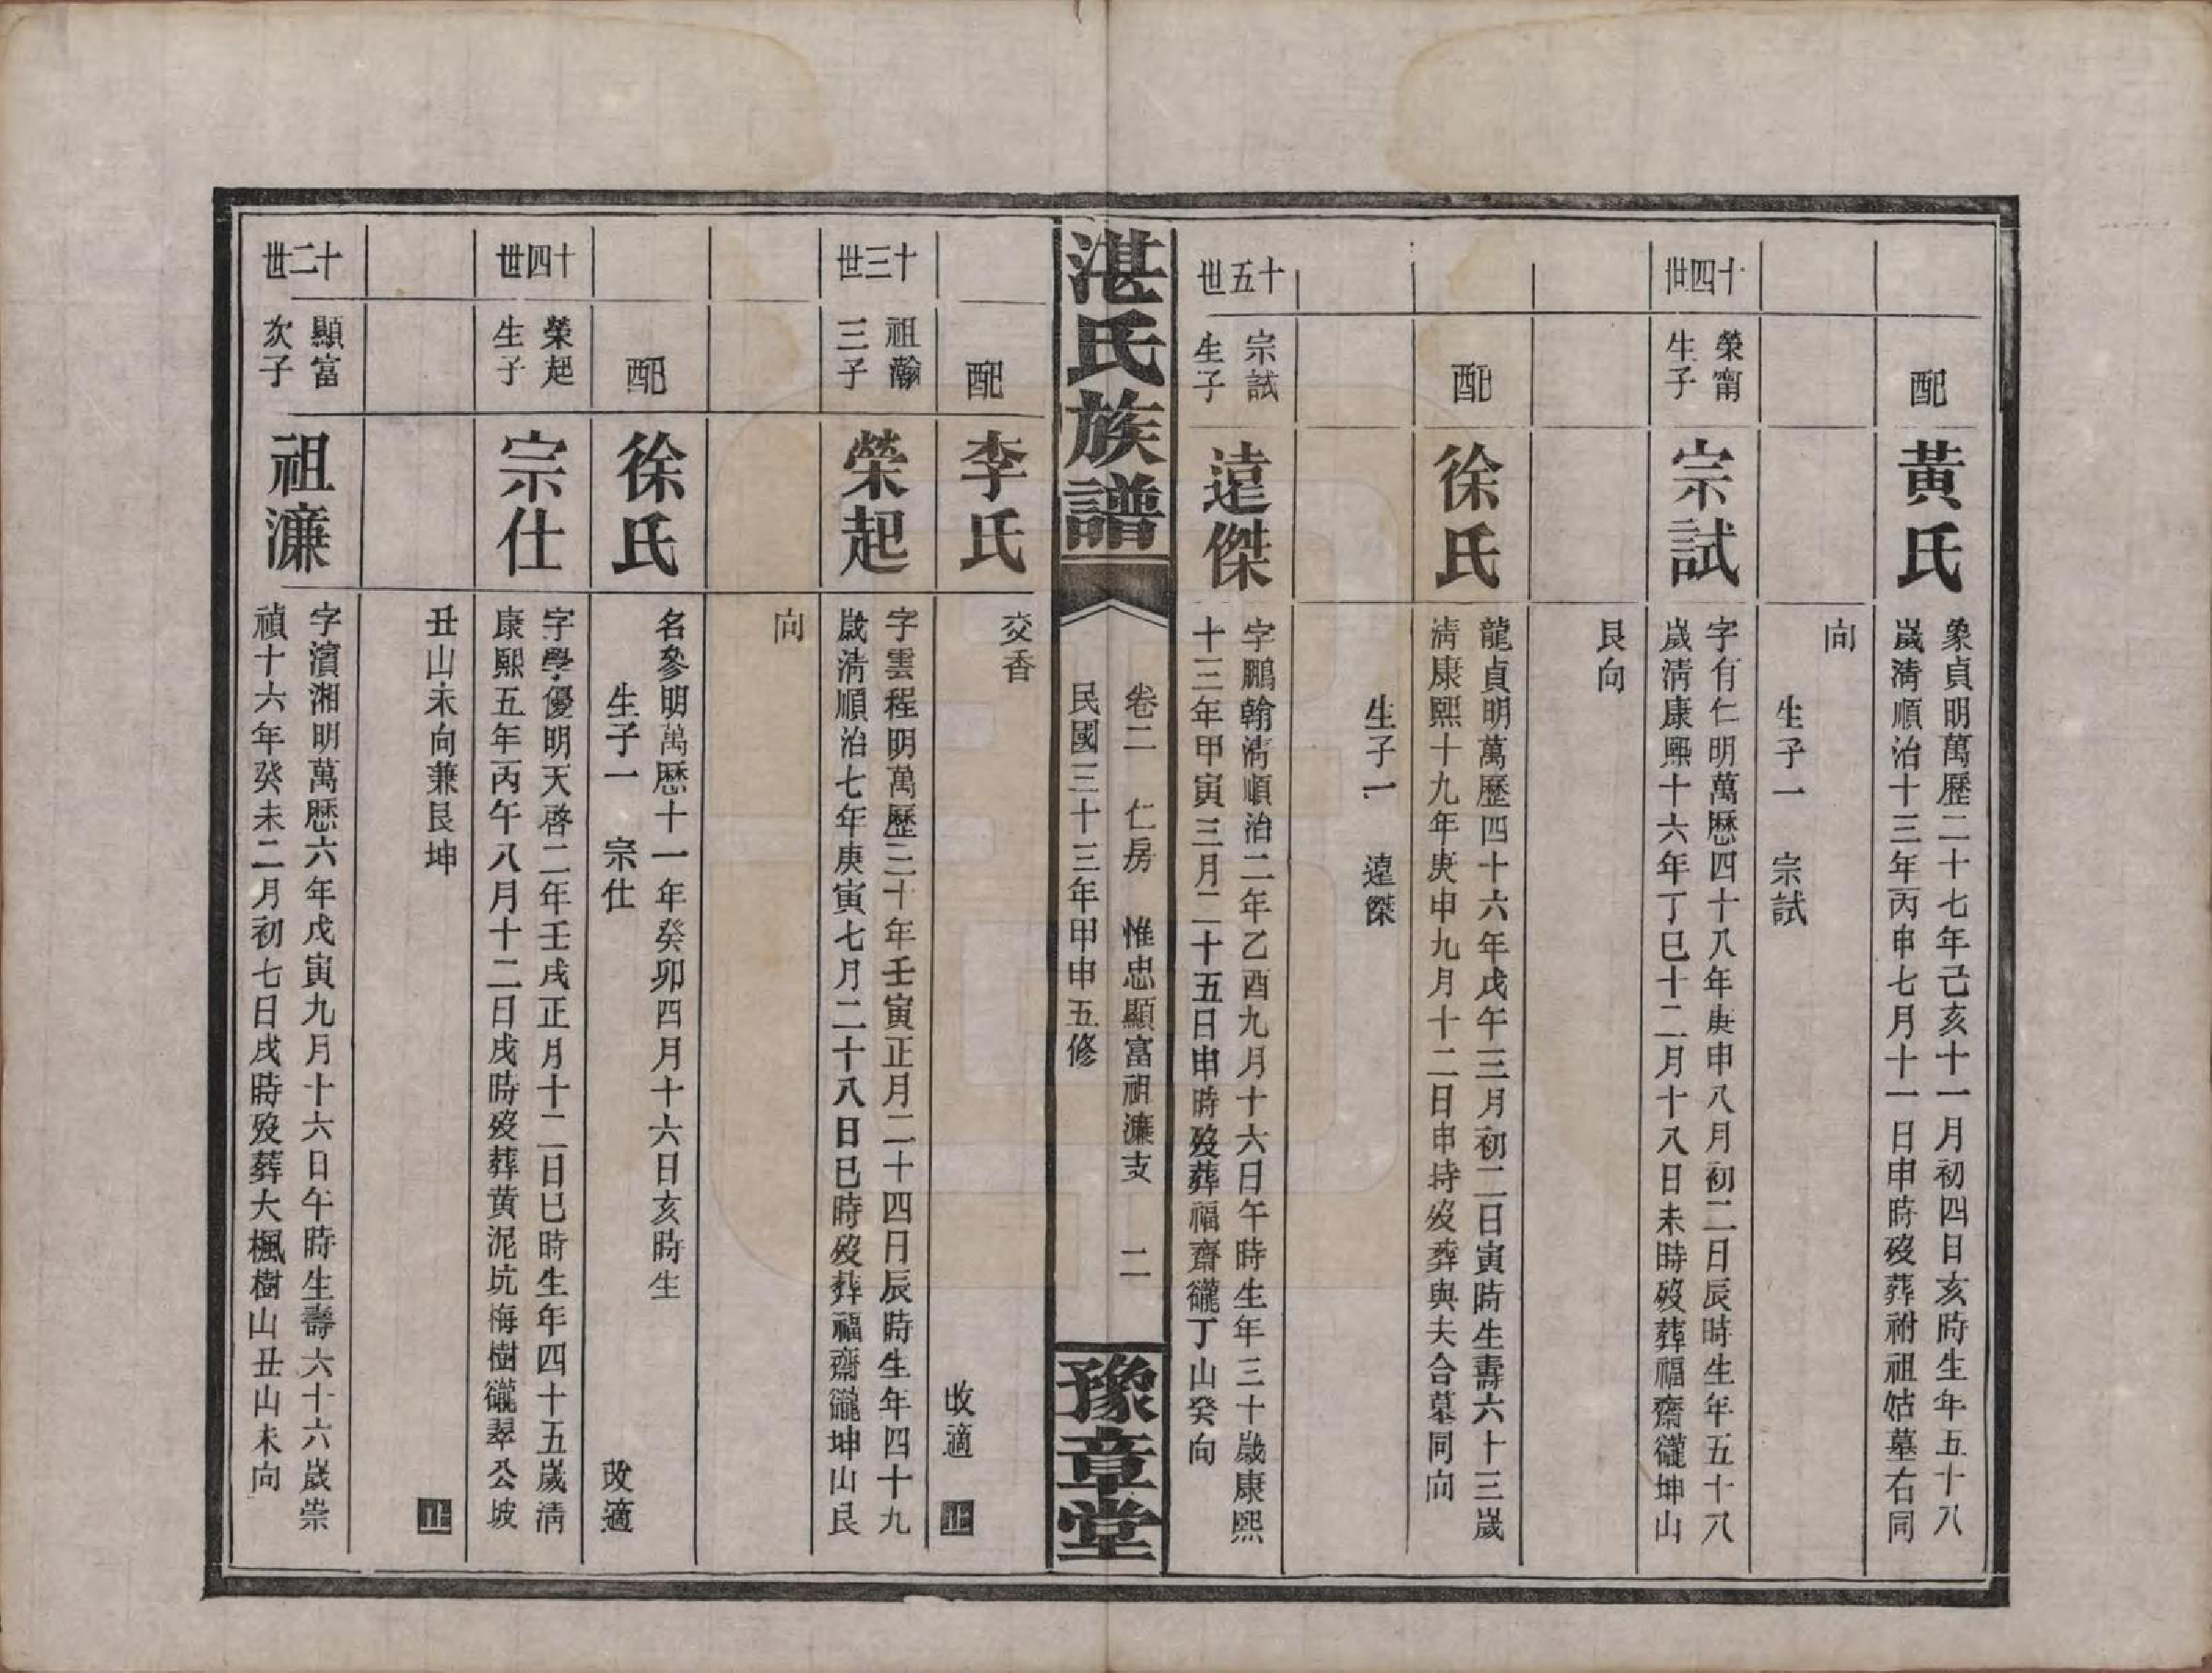 配
黃氏
象貞明萬歷二十七年己亥十一月初四日亥時生年五十八
歲淸順治十三年丙申七月十一日申時歿葬祔祖姑墓右同
向
生子一　宗試
十四世
榮甯
生子
宗試
字有仁明萬歷四十八年庚申八月初二日辰時生年五十八
歲淸康熙十六年丁巳十二月十八日未時歿葬福齋𡾋坤山
艮向
配
徐氏
龍貞明萬歷四十六年戊午三月初二日寅時生壽六十三歲
淸康熙十九年庚申九月十二日申時歿葬與夫合墓同向
生子一　遠傑
十五世
宗試
生子
遠傑
字鵬翰淸順治二年乙酉九月十六日午時生年三十歲康熙
十三年甲寅三月二十五日申時歿葬福齋𡾋丁山癸向
湛氏族譜
卷二　仁房　惟忠顯富祖濂支　二
民國三十三年甲申五修
豫章堂
配
李氏
交香
改適　止
十三世
祖瀚
三子
榮起
字雲程明萬歷三十年壬寅正月二十四日辰時生年四十九
歲淸順治七年庚寅七月二十八日巳時歿葬福齋𡾋坤山艮
向
配
徐氏
名參明萬歷十一年癸卯四月十六日亥時生
生子一　宗仕　改適
十四世
榮起
生子
宗仕
字學優明天啓二年壬戌正月十二日巳時生年四十五歲淸
康熙五年丙午八月十二日戌時歿葬黃泥坑梅樹𡾋翠公坡
丑山未向兼艮坤　止
十二世
顯富
次子
祖濂
字濱湘明萬歷六年戊寅九月十六日午時生壽六十六歲崇
禎十六年癸未二月初七日戌時歿葬大楓樹山丑山未向